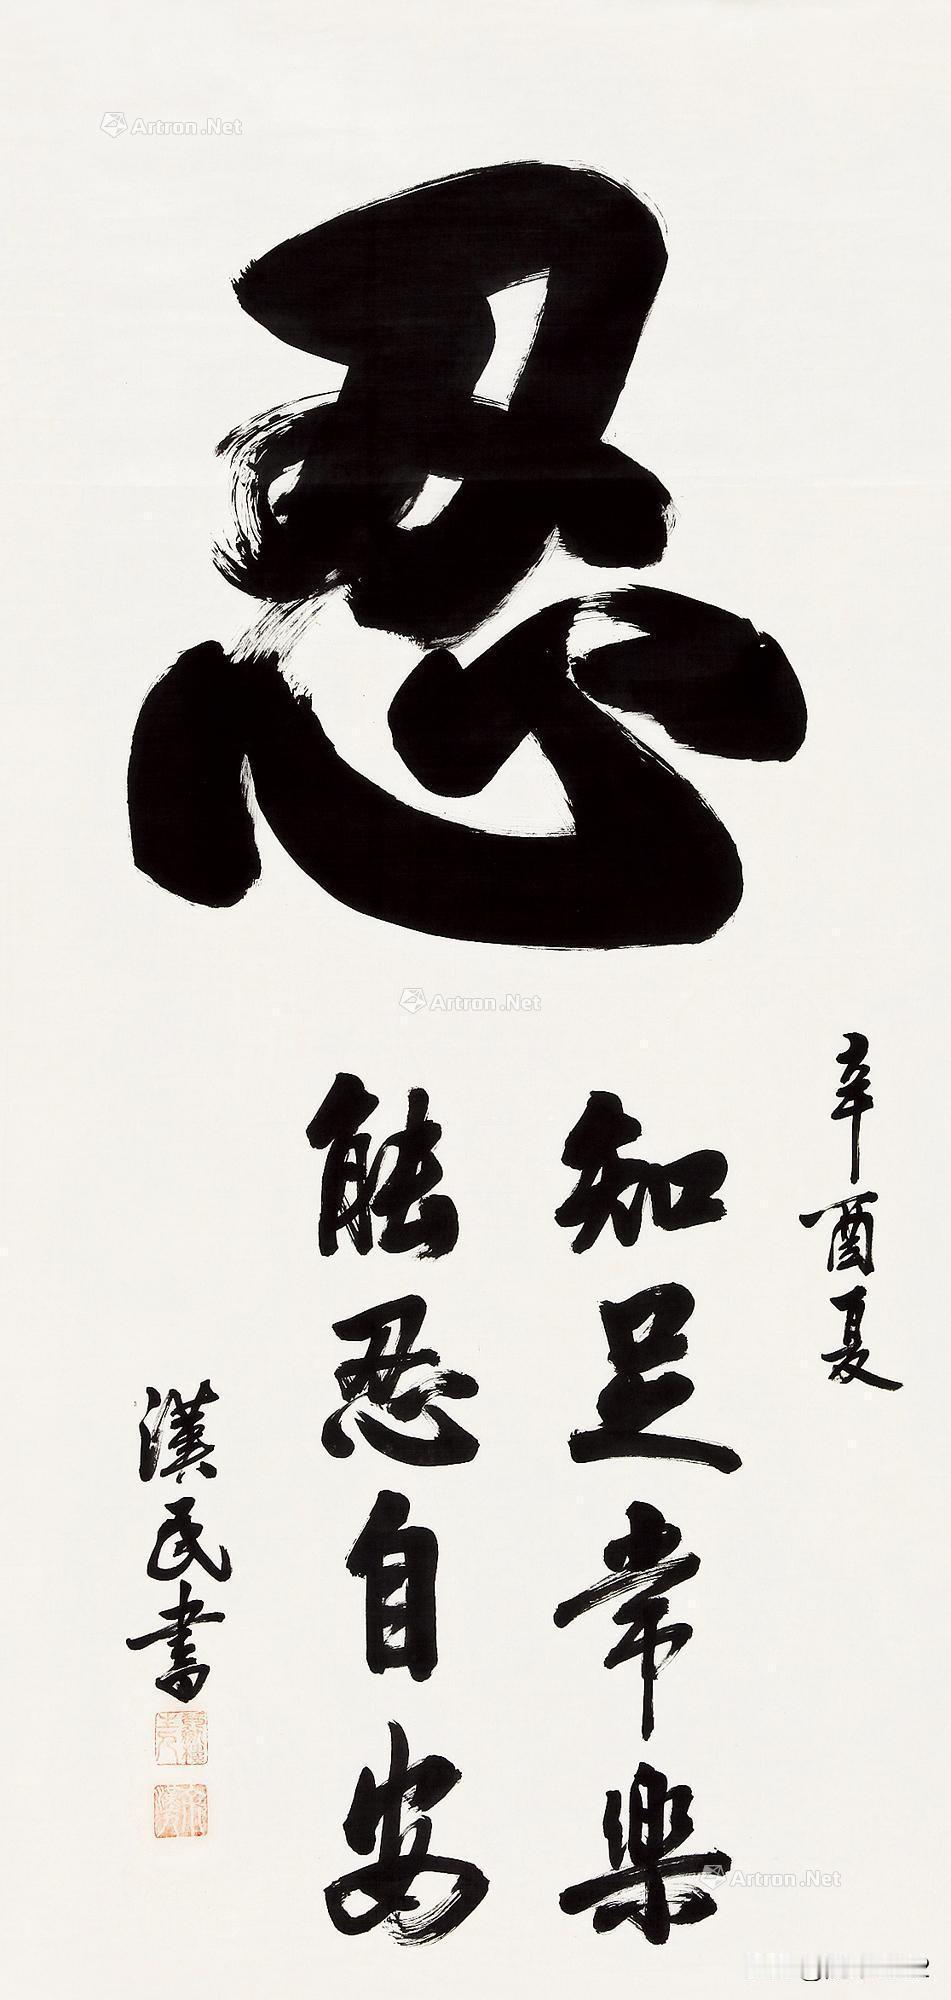 忍
辛酉夏
知足常樂
能忍自安
漢民書
Artron.Net
Artron.Net
Artron.Net